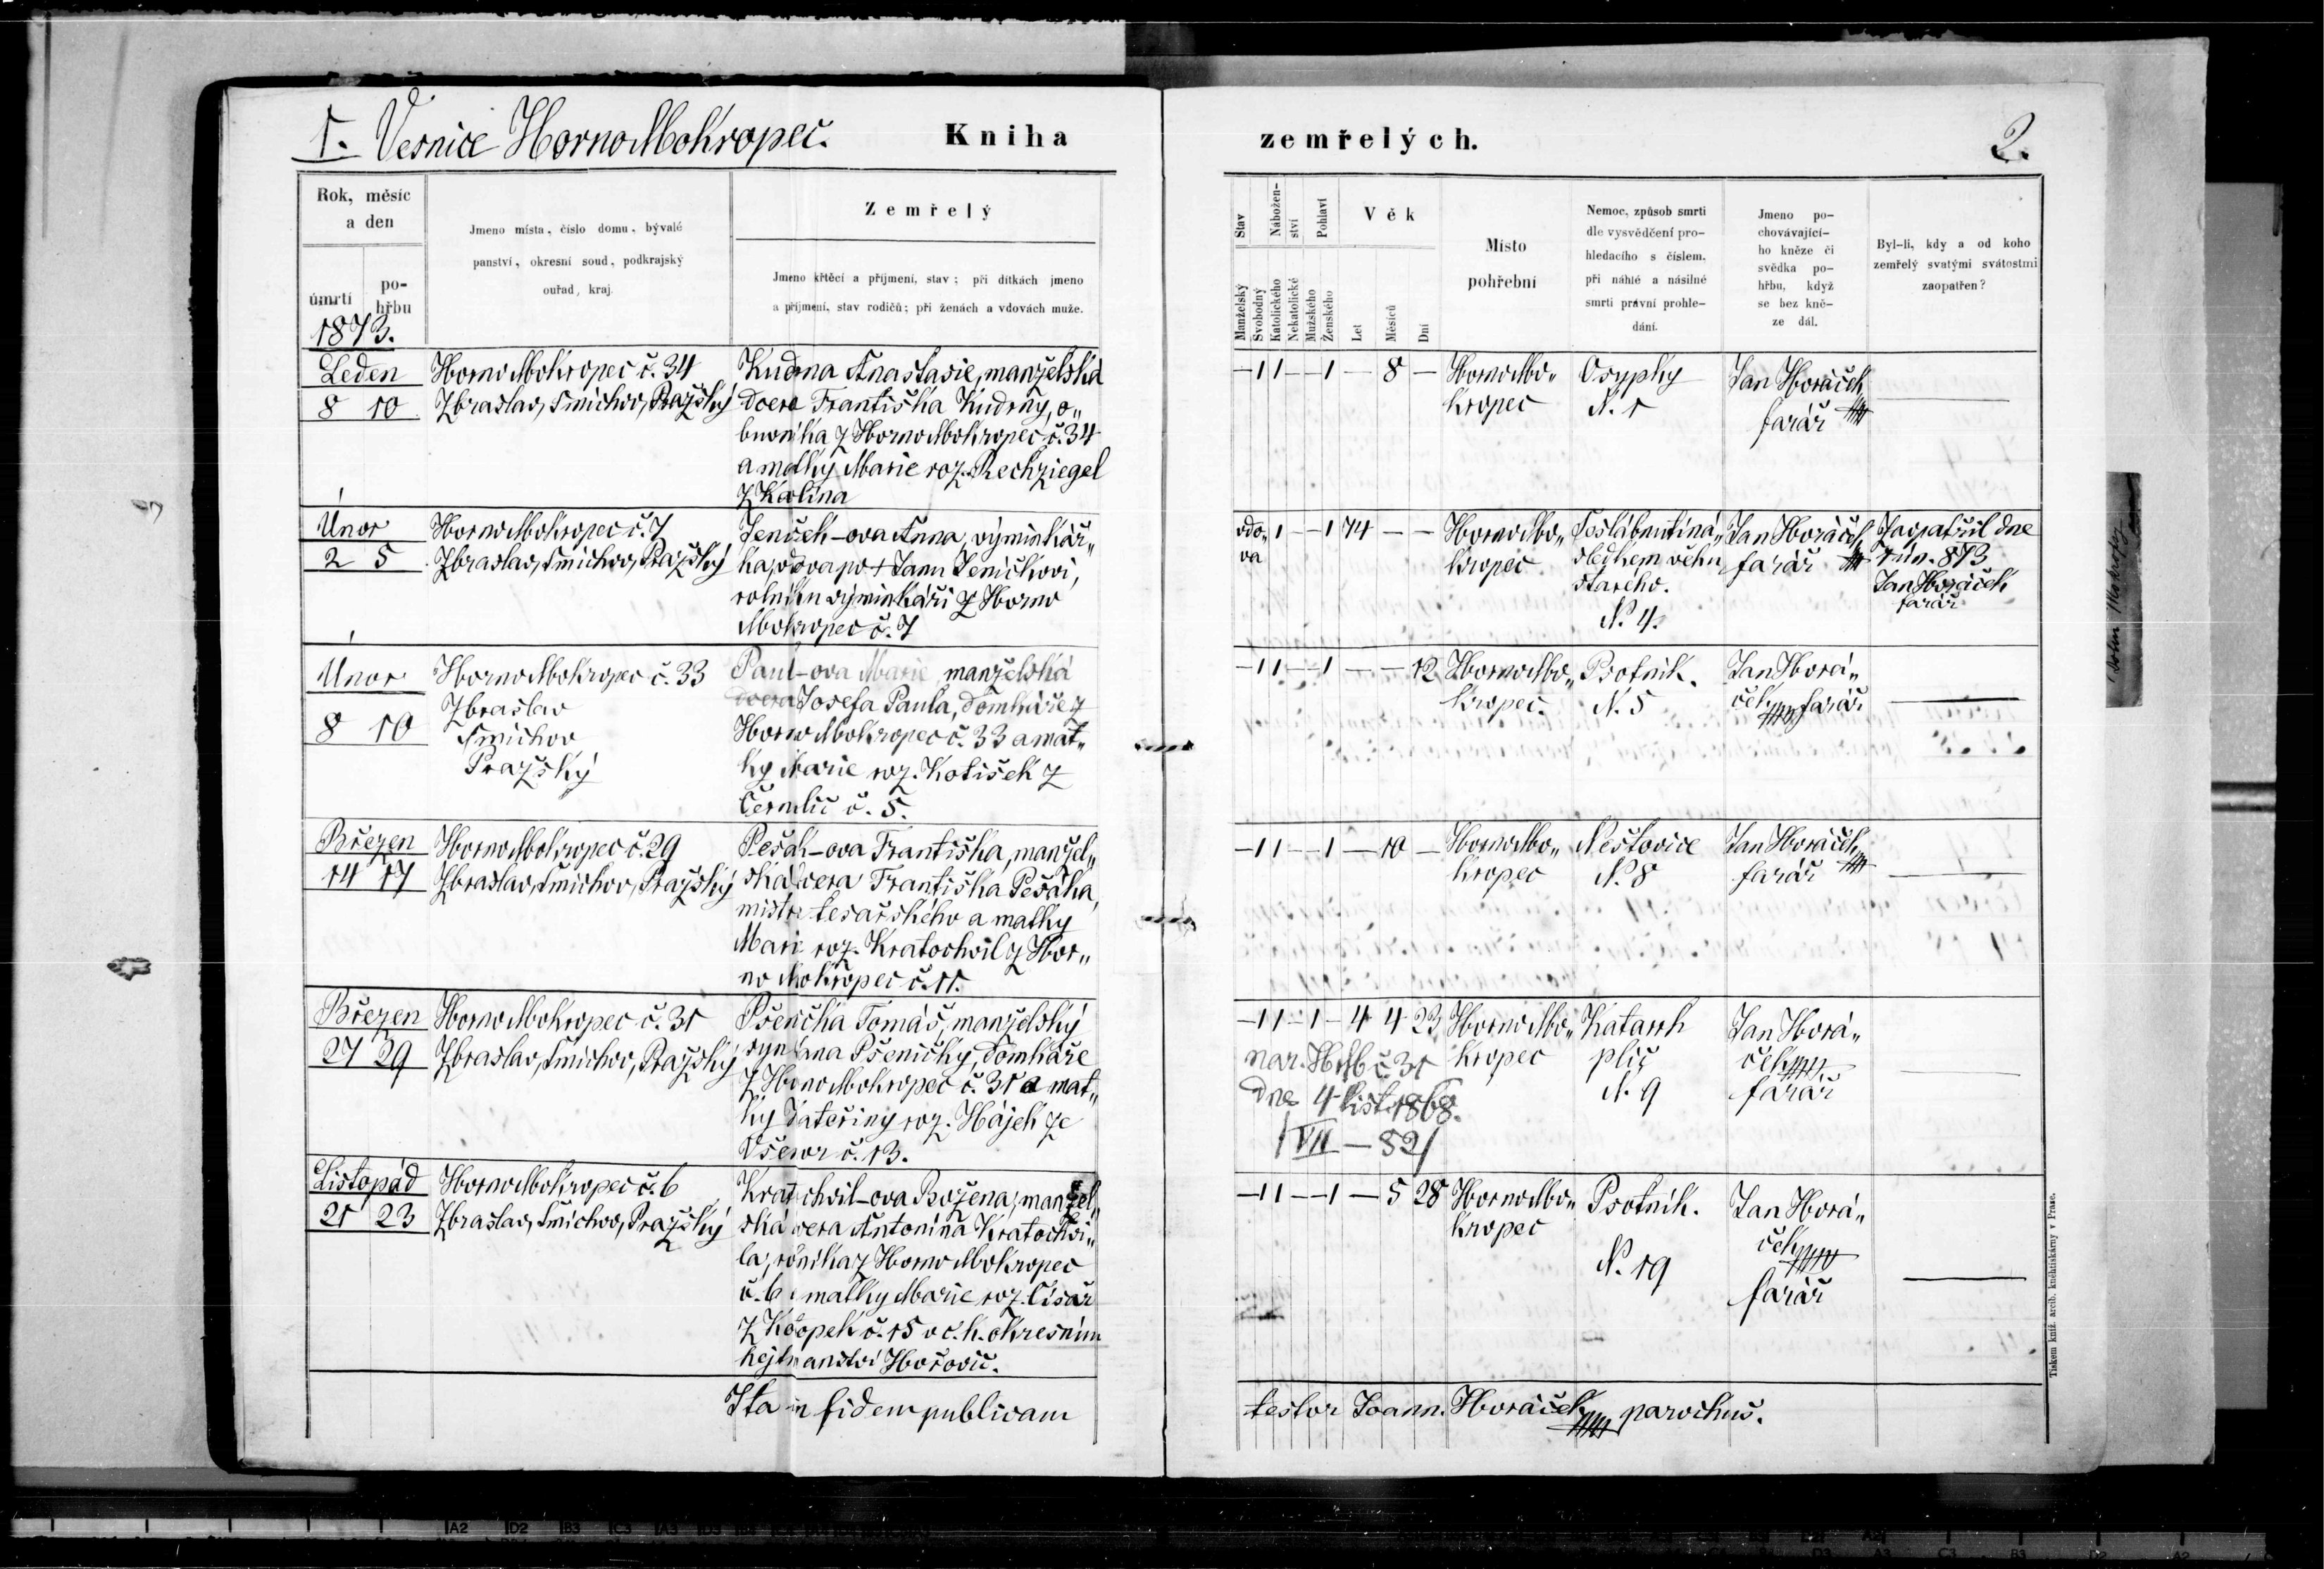 1. Vesnice HornoMokropec. Kniha zemřelých. 2.
Rok, měsíc
a den
úmrtí
po-
hřbu
1873.
Jmeno místa, číslo domu, bývalé
panství, okresní soud, podkrajský
ouřad, kraj.
Zemřelý
Jmeno křtěcí a příjmení, stav; při dítkách jmeno
a příjmení, stav rodičů; při ženách a vdovách muže.
Stav
Manželský
Svobodný
Nábožen-
ství
Katolického
Nekatolické
Pohlaví
Mužského
Ženského
Věk
Let
Měsíců
Dní
Místo
pohřební
Nemoc, způsob smrti
dle vysvědčení pro-
hledacího s číslem.
při náhlé a násilné
smrti právní prohle-
dání.
Jmeno po-
chovávající-
ho kněze či
svědka po-
hřbu, když
se bez kně-
ze dál.
Byl-li, kdy a od koho
zemřelý svatými svátostmi
zaopatřen?
Leden
8 10
HornoMokropec č. 34
Zbraslav, Smíchov, Pražský
Kudrna Anastasie, manželská
dcera Františka Kudrny, o„
buvníka z HornoMokropec č. 34
a matky Marie roz. Rechziegel
z Kolína
– 1 1 – – 1 – 8 –
HornoMo„
kropec
Osypky
N. 1
Jan Horáček
farář
Únor
2 5
HornoMokropec č. 7
Zbraslav, Smíchov, Pražský
Jeníček-ova Anna, výminkář„
ka, vdova po † Janu Jeníčkovi,
rolníku výminkáři z Horno
Mokropec č. 7
vdo„
va
1 – 1 74 – –
HornoMo„
kropec
Seslábnutí ná„
sledkem věku
starého.
N. 4.
Jan Horáček
farář
Zaopatřil dne
1 ún. 873
Jan Horáček
farář
Únor
8 10
HornoMokropec č. 33
Zbraslav
Smíchov
Pražský
Paul-ova Marie, manželská
dcera Josefa Paula, domkáře z
HornoMokropec č. 33 a mat„
ky Marie roz. Kotíšek z
č. 5.
– 1 1 – – 1 – – 12
HornoMo„
kropec.
Psotník.
N. 5
Jan Horá„
ček farář
Březen
14 17
HornoMokropec č. 29
Zbraslav, Smíchov, Pražský
Pešák-ova Františka, manžel„
ská dcera Františka Pešáka,
mistra tesařského a matky
Marie roz. Kratochvil z Hor„
no Mokropec č. 11.
– 1 1 – – 1 – 10 –
HornoMo„
kropec
Neštovice
N. 8
Jan Horáček
farář
Březen
27 29
HornoMokropec č. 31
Zbraslav, Smíchov, Pražský
Pšenička Tomáš, manželský
syn Jana Pšeničky, domkáře
z HornoMokropec č. 31 a mat„
ky Kateřiny roz. Hájek ze
Všenor č. 13.
– 1 1 – 1 – 4 4 23
nar. č 31
dne 4 list. 1868.
/VII – 52/
HornoMo„
kropec
Katarrh
plic
N. 9
Jan Horá„
ček
farář
Listopad
21 23
HornoMokropec č. 6
Zbraslav, Smíchov, Pražský
Kratochvil-ova Božena, manžel„
ská dcera Antonína Kratochví„
la, rolníka z HornoMokropec
č. 6 a matky Marie roz. Císař
z č. 15 v c. k. okresním
hejtmanství Hořovic.
– 1 1 – – 1 – 5 28
HornoMo„
kropec
Psotník.
N. 19
Jan Horá„
ček
farář
Ita in fidem publicam testor Joann. Horáček parochus.
Tiskem kníž. arcib. knihtiskárny v Praze.